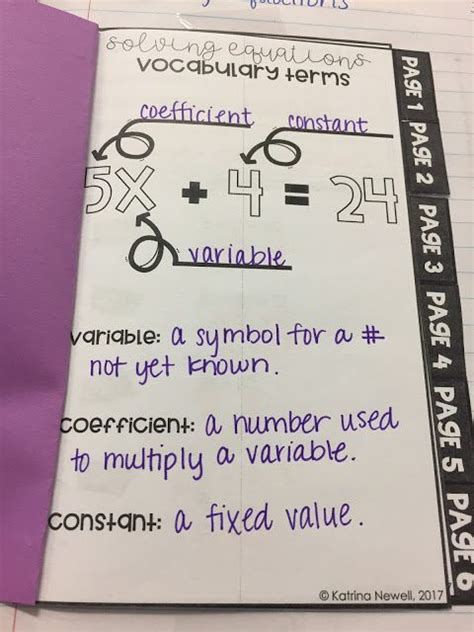 solving equations
vocabulary terms
coefficient
constant
5x + 4 = 24
variable
variable: a symbol for a #
not yet known.
coefficient: a number used
to multiply a variable.
constant: a fixed value.
© Katrina Newell, 2017
PAGE 1
PAGE 2
PAGE 3
PAGE 4
PAGE 5
PAGE 6